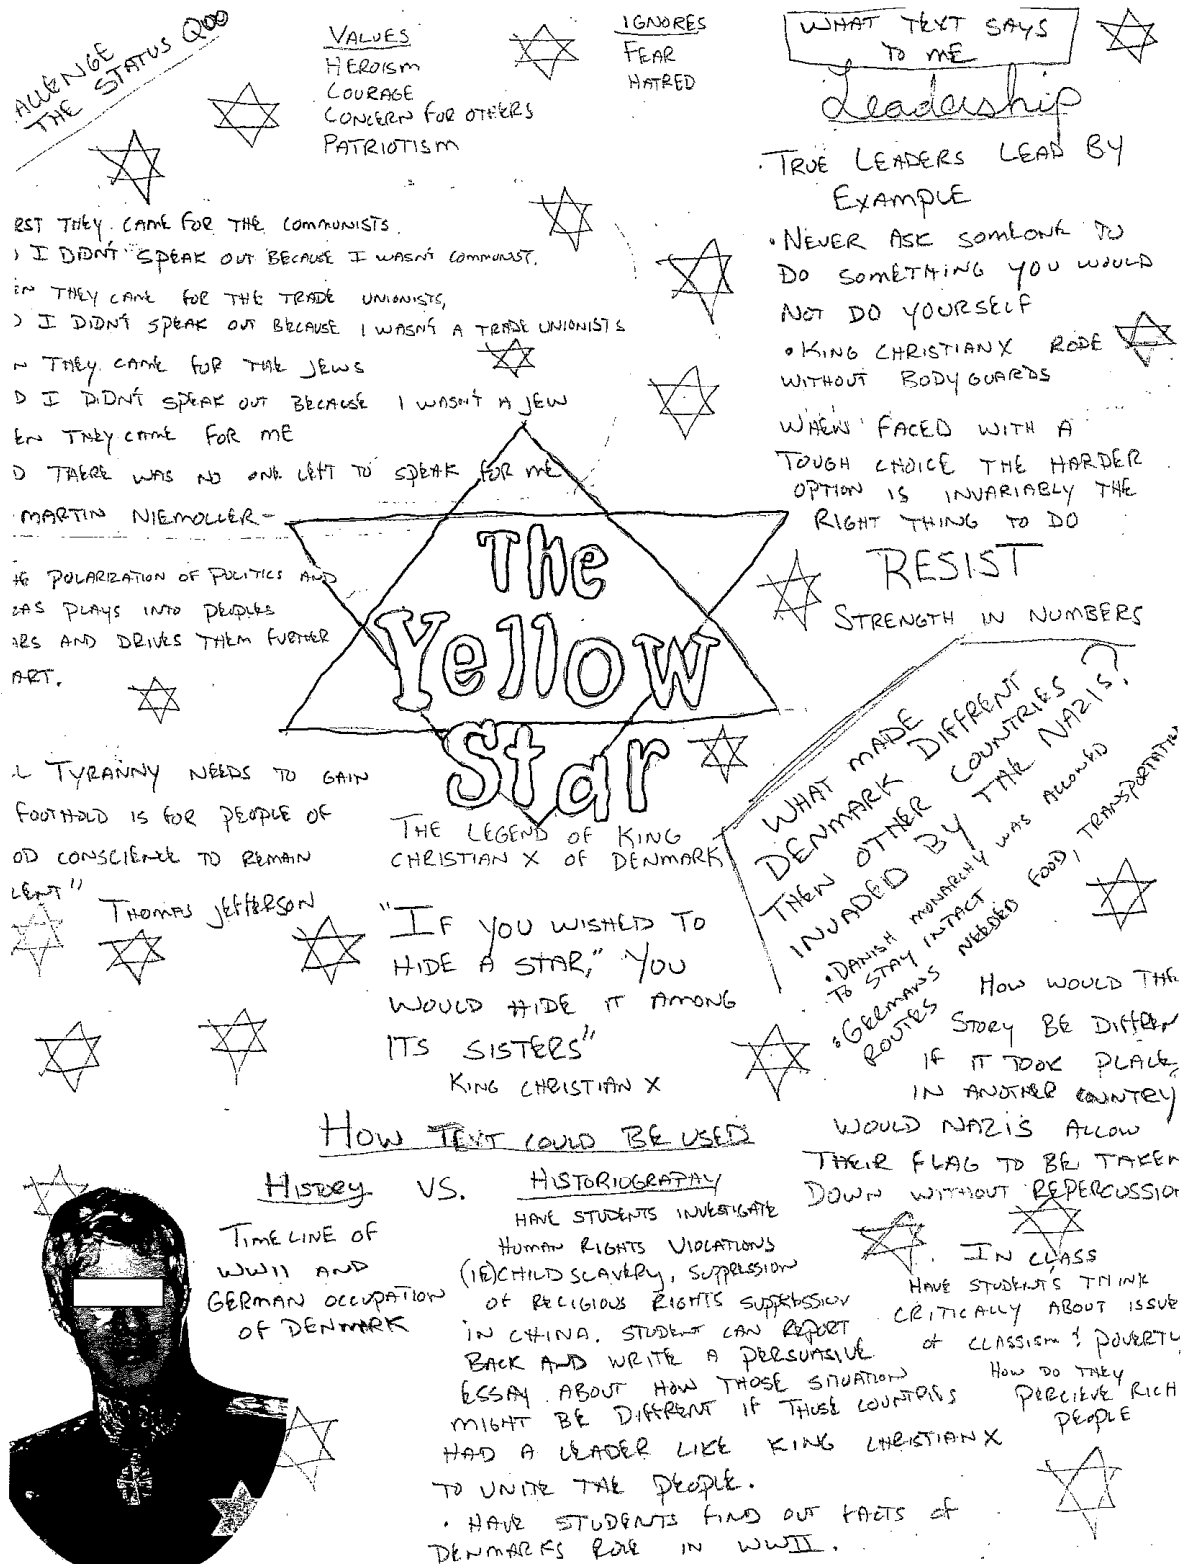 ALLENGE
THE STATUS QOO
VALUES
HEROISM
COURAGE
CONCERN FOR OTHERS
PATRIOTISM
IGNORES
FEAR
HATRED
WHAT TEXT SAYS
TO ME
Leadership
• TRUE LEADERS LEAD BY
EXAMPLE
• NEVER ASK SOMEONE TO
DO SOMETHING YOU WOULD
NOT DO YOURSELF
• KING CHRISTIAN X RODE
WITHOUT BODYGUARDS
WHEN FACED WITH A
TOUGH CHOICE THE HARDER
OPTION IS INVARIABLY THE
RIGHT THING TO DO
RESIST
STRENGTH IN NUMBERS
RST THEY CAME FOR THE COMMUNISTS.
I DIDN'T SPEAK OUT BECAUSE I WASN'T COMMUNIST.
EN THEY CAME FOR THE TRADE UNIONISTS,
I DIDN'T SPEAK OUT BECAUSE I WASN'T A TRADE UNIONISTS
N THEY CAME FOR THE JEWS
D I DIDN'T SPEAK OUT BECAUSE I WASN'T A JEW
EN THEY CAME FOR ME
D THERE WAS NO ONE LEFT TO SPEAK FOR ME
MARTIN NIEMOLLER-
HE POLARIZATION OF POLITICS AND
EAS PLAYS INTO PEOPLES
ARS AND DRIVES THEM FURTHER
ART.
The
Yellow
Star
THE LEGEND OF KING
CHRISTIAN X OF DENMARK
L TYRANNY NEEDS TO GAIN
FOOTHOLD IS FOR PEOPLE OF
OD CONSCIENCE TO REMAIN
LENT"
THOMAS JEFFERSON
"IF YOU WISHED TO
HIDE A STAR," YOU
WOULD HIDE IT AMONG
ITS SISTERS"
KING CHRISTIAN X
WHAT MADE
DENMARK DIFFRENT
THEN OTHER COUNTRIES
INVADED BY THE NAZIS?
• DANISH MONARCHY WAS ALLOWED
TO STAY INTACT
• GERMANS NEEDED FOOD, TRANSPORTATION
ROUTES
HOW WOULD THE
STORY BE DIFFREN
IF IT TOOK PLACE
IN ANOTHER COUNTRY
WOULD NAZIS ALLOW
THEIR FLAG TO BE TAKEN
DOWN WITHOUT REPERCUSSION
HOW TEXT COULD BE USED
HISTORY VS. HISTORIOGRAPHY
TIMELINE OF
WWII AND
GERMAN OCCUPATION
OF DENMARK
HAVE STUDENTS INVESTIGATE
HUMAN RIGHTS VIOLATIONS
(IE) CHILD SLAVERY, SUPPRESSION
OF RELIGIOUS RIGHTS SUPPRESSION
IN CHINA. STUDENT CAN REPORT
BACK AND WRITE A PERSUASIVE
ESSAY ABOUT HOW THOSE SITUATION
MIGHT BE DIFFRENT IF THOSE COUNTRIES
HAD A LEADER LIKE KING CHRISTIAN X
TO UNITE THE PEOPLE.
• HAVE STUDENTS FIND OUT FACTS OF
DENMARKS ROLE IN WWII.
• IN CLASS
HAVE STUDENTS THINK
CRITICALLY ABOUT ISSUE
OF CLASSISM & POVERTY
HOW DO THEY
PERCIEVE RICH
PEOPLE